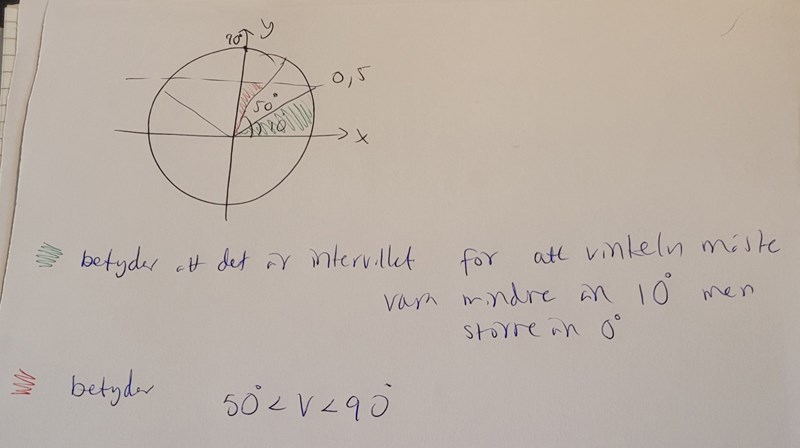 90° y
0,5
50°
x
betyder att det är intervillet för att vinkeln måste
vara mindre än 10° men
större än 0°
betyder 50° < v < 90°